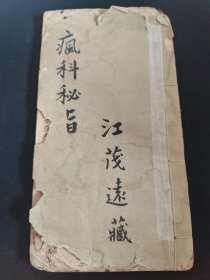 瘋科秘旨
江茂遠藏